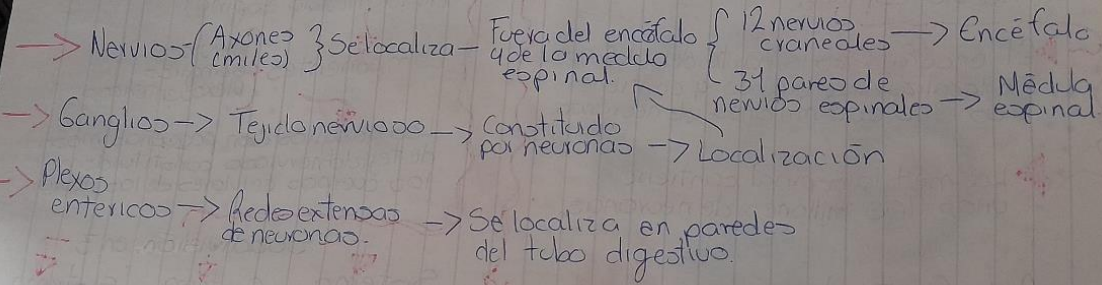 → Nervios- (Axones
(miles) } Se localiza - Fuera del encéfalo
y de la medula
espinal. { 12 nervios
craneales → Encéfalo
31 pares de
nervios espinales → Médula
espinal
→ Ganglios → Tejido nervioso → Constituido
por neuronas → Localización
→ Plexos
entericos → Redes extensas
de neuronas. → Se localiza en paredes
del tubo digestivo.